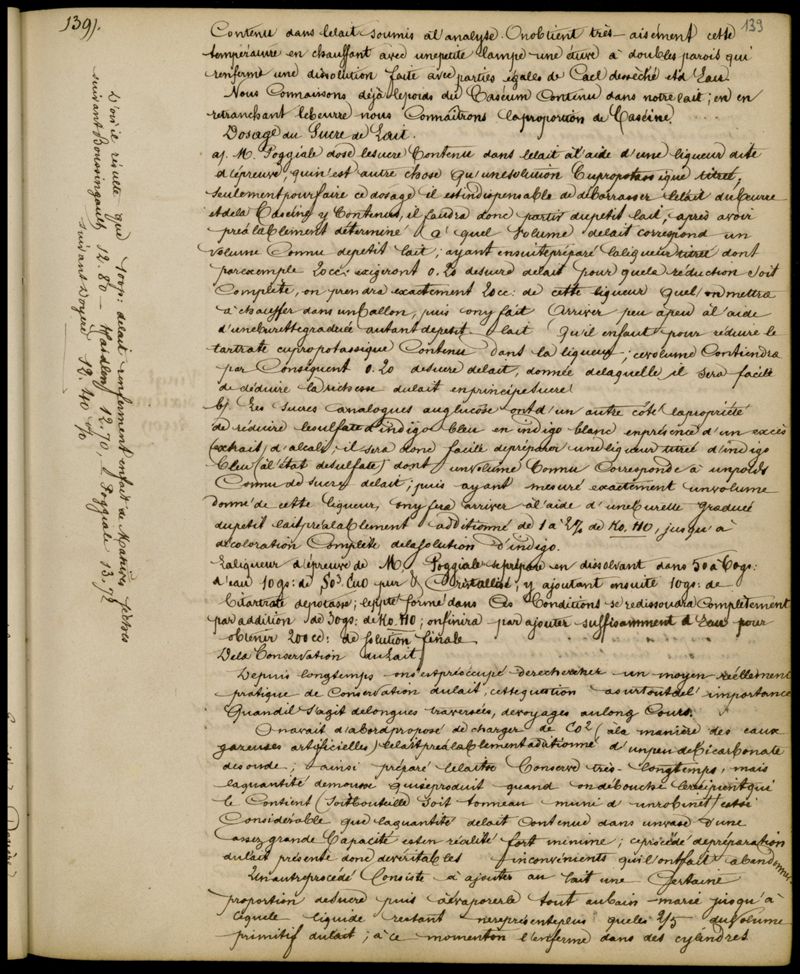 139).
139
Contenu dans le lait soumis à l'analyse. On obtient très aisément cette
température en chauffant avec une petite lampe une étuve à doubles parois qui
renferme une dissolution faite avec parties égales de CaCl desséché et d'Eau.
Nous Connaissons déjà le poids du Caséum Contenu dans notre lait ; en en
retranchant le beurre nous Connaîtrons la proportion de Caséine.
Dosage du Sucre de Lait.
a). M. Poggiale dose le sucre Contenu dans le lait à l'aide d'une liqueur dite
d'épreuve qui n'est autre chose qu'une solution Cupropotassique titrée ;
seulement pour faire ce dosage il est indispensable de débarrasser le lait du beurre
et de la Caséine y Contenus, il faudra donc partir du petit lait, après avoir
préalablement déterminé à quel Volume de lait correspond un
volume Connu de petit lait ; ayant ensuite préparé la liqueur titrée dont
par exemple 20cc: exigeront 0.20 de sucre de lait pour que la réduction soit
Complète, on prendra exactement 20cc: de cette liqueur quel'on mettra
à chauffer dans un ballon, puis on y fait arriver peu à peu à l'aide
d'une burette graduée autant de petit lait qu'il en faut pour réduire le
tartrate cupropotassique Contenu dans la liqueur ; ce volume Contiendra
par Conséquent 0.20 de sucre de lait, donnée de laquelle il sera facile
de déduire la richesse du lait en principe sucré.
b). Les sucres analogues au glucose ont d'un autre côté la propriété
de réduire le sulfate d'indigo bleu en indigo blanc en présence d'un excès
d'alcali ; il sera donc facile de préparer une liqueur titrée d'indigo
bleu (à l'état de sulfate) dont un volume Connu Corresponde à un poids
Connu de sucre de lait ; puis ayant mesuré exactement un volume
donné de cette liqueur, on y fera arriver à l'aide d'une burette graduée
du petit lait préalablement additionné de 1 à 2% de Ko. HO, jusqu'à
décoloration Complète de la solution d'indigo.
La liqueur d'épreuve de M. Poggiale se prépare en dissolvant dans 50 à 60gs:
d'eau 10gs: de SO³. CuO pur & Cristallisé, y ajoutant ensuite 10gs: de
bitartrate de potasse ; le ppté formé dans Ces Conditions se redissoudra Complètement
par addition de 30gs: de Ko. HO ; on finira par ajouter suffisamment d'Eau pour
obtenir 200cc: de solution finale.
De la Conservation du Lait.
Depuis longtemps on s'est préoccupé de rechercher un moyen réellement
pratique de Conservation du lait, cette question a surtout de l'importance
Quand il s'agit de longues traversées, de voyages au long Cours.
On avait d'abord proposé de charger de CO² (à la manière des eaux
gazeuses artificielles) le lait préalablement additionné d'un peu de bicarbonate
de soude ; ainsi préparé le lait se Conserve très longtemps, mais
la quantité de mousse qui se produit quand on débouche le récipient qui
le Contient (soit bouteille soit tonneau muni d'un robinet) est si
Considérable que la quantité de lait Contenue dans un vase d'une
assez grande Capacité est en réalité fort minime ; ce procédé de préparation
du lait présente donc de véritables inconvénients qui l'ont fait abandonner.
Un autre procédé Consiste à ajouter au lait une Certaine
proportion de sucre puis à évaporer le tout au bain-marie jusqu'à
ce que le liquide restant ne représente plus que les 2/5 du Volume
primitif du lait ; à ce moment on l'enferme dans des cylindres
D'où il résulte que 100p: de lait renferment en fait de Matières fixes
suivant Boussingault 12.80 — Haidlen 12.70, & Poggiale 13.72
suivant Doyère 12.40 %